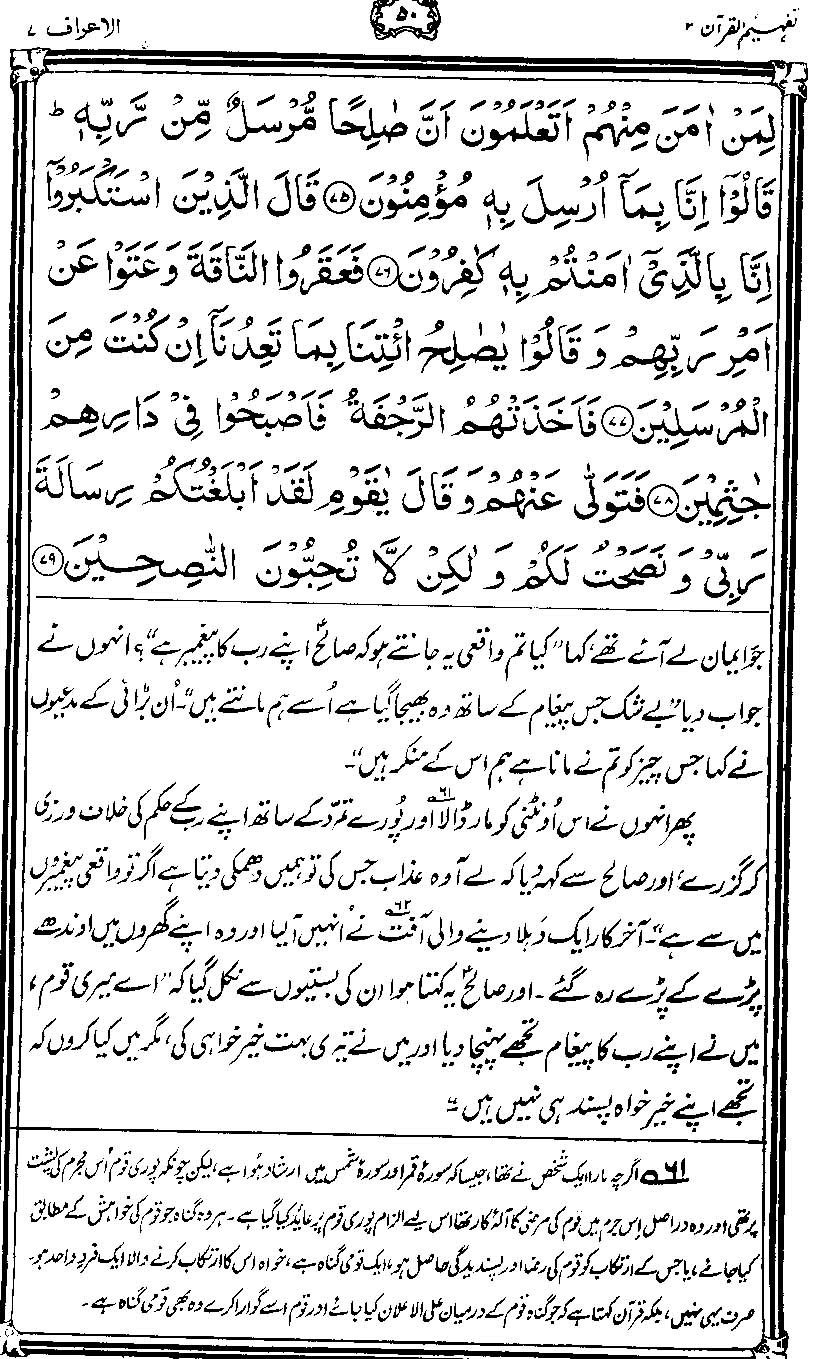 تفہیم القرآن ۲
۵۰
الاعراف ۷
لِمَنْ اٰمَنَ مِنْهُمْ اَتَعْلَمُوْنَ اَنَّ صٰلِحًا مُّرْسَلٌ مِّنْ رَّبِّهٖ ؕ
قَالُوْٓا اِنَّا بِمَآ اُرْسِلَ بِهٖ مُؤْمِنُوْنَ ﴿۷۵﴾ قَالَ الَّذِيْنَ اسْتَكْبَرُوْٓا
اِنَّا بِالَّذِيْٓ اٰمَنْتُمْ بِهٖ كٰفِرُوْنَ ﴿۷۶﴾ فَعَقَرُوا النَّاقَةَ وَعَتَوْا عَنْ
اَمْرِ رَبِّهِمْ وَ قَالُوْا يٰصٰلِحُ ائْتِنَا بِمَا تَعِدُنَآ اِنْ كُنْتَ مِنَ
الْمُرْسَلِيْنَ ﴿۷۷﴾ فَاَخَذَتْهُمُ الرَّجْفَةُ فَاَصْبَحُوْا فِيْ دَارِهِمْ
جٰثِمِيْنَ ﴿۷۸﴾ فَتَوَلّٰى عَنْهُمْ وَ قَالَ يٰقَوْمِ لَقَدْ اَبْلَغْتُكُمْ رِسَالَةَ
رَبِّيْ وَ نَصَحْتُ لَكُمْ وَ لٰكِنْ لَّا تُحِبُّوْنَ النّٰصِحِيْنَ ﴿۷۹﴾
جو ایمان لے آئے تھے، کہا ”کیا تم واقعی یہ جانتے ہو کہ صالحؑ اپنے رب کا پیغمبر ہے“؟ انہوں نے
جواب دیا ”بے شک جس پیغام کے ساتھ وہ بھیجا گیا ہے اُسے ہم مانتے ہیں“۔ اُن بڑائی کے مدعیوں
نے کہا جس چیز کو تم نے مانا ہے ہم اس کے منکر ہیں“۔
پھر انہوں نے اس اُونٹنی کو مار ڈالا ۶۱؎ اور پُورے تمرّد کے ساتھ اپنے رب کے حکم کی خلاف ورزی
کر گزرے، اور صالح سے کہہ دیا کہ لے آ وہ عذاب جس کی تو ہمیں دھمکی دیتا ہے اگر تو واقعی پیغمبروں
میں سے ہے“۔ آخر کار ایک دَہلا دینے والی آفت ۶۲؎ نے اُنہیں آ لیا اور وہ اپنے گھروں میں اوندھے
پڑے کے پڑے رہ گئے۔ اور صالحؑ یہ کہتا ہوا ان کی بستیوں سے نکل گیا کہ ”اے میری قوم،
میں نے اپنے رب کا پیغام تجھے پہنچا دیا اور میں نے تیری بہت خیر خواہی کی، مگر میں کیا کروں کہ
تجھے اپنے خیر خواہ پسند ہی نہیں ہیں“۔
۶۱؎ اگرچہ مارا ایک شخص نے تھا، جیسا کہ سورۂ قمر اور سورۂ شمس میں ارشاد ہُوا ہے، لیکن چونکہ پوری قوم اُس مجرم کی پُشت
پر تھی اور وہ دراصل اِس جرم میں قوم کی مرضی کا آلۂ کار تھا اس لیے الزام پوری قوم پر عاید کیا گیا ہے۔ ہر وہ گناہ جو قوم کی خواہش کے مطابق
کیا جائے، یا جس کے ارتکاب کو قوم کی رضا اور پسندیدگی حاصل ہو، ایک قومی گناہ ہے، خواہ اس کا ارتکاب کرنے والا ایک فردِ واحد ہو۔
صرف یہی نہیں، بلکہ قرآن کہتا ہے کہ جو گناہ قوم کے درمیان علی الاعلان کیا جائے اور قوم اسے گوارا کرے وہ بھی قومی گناہ ہے۔